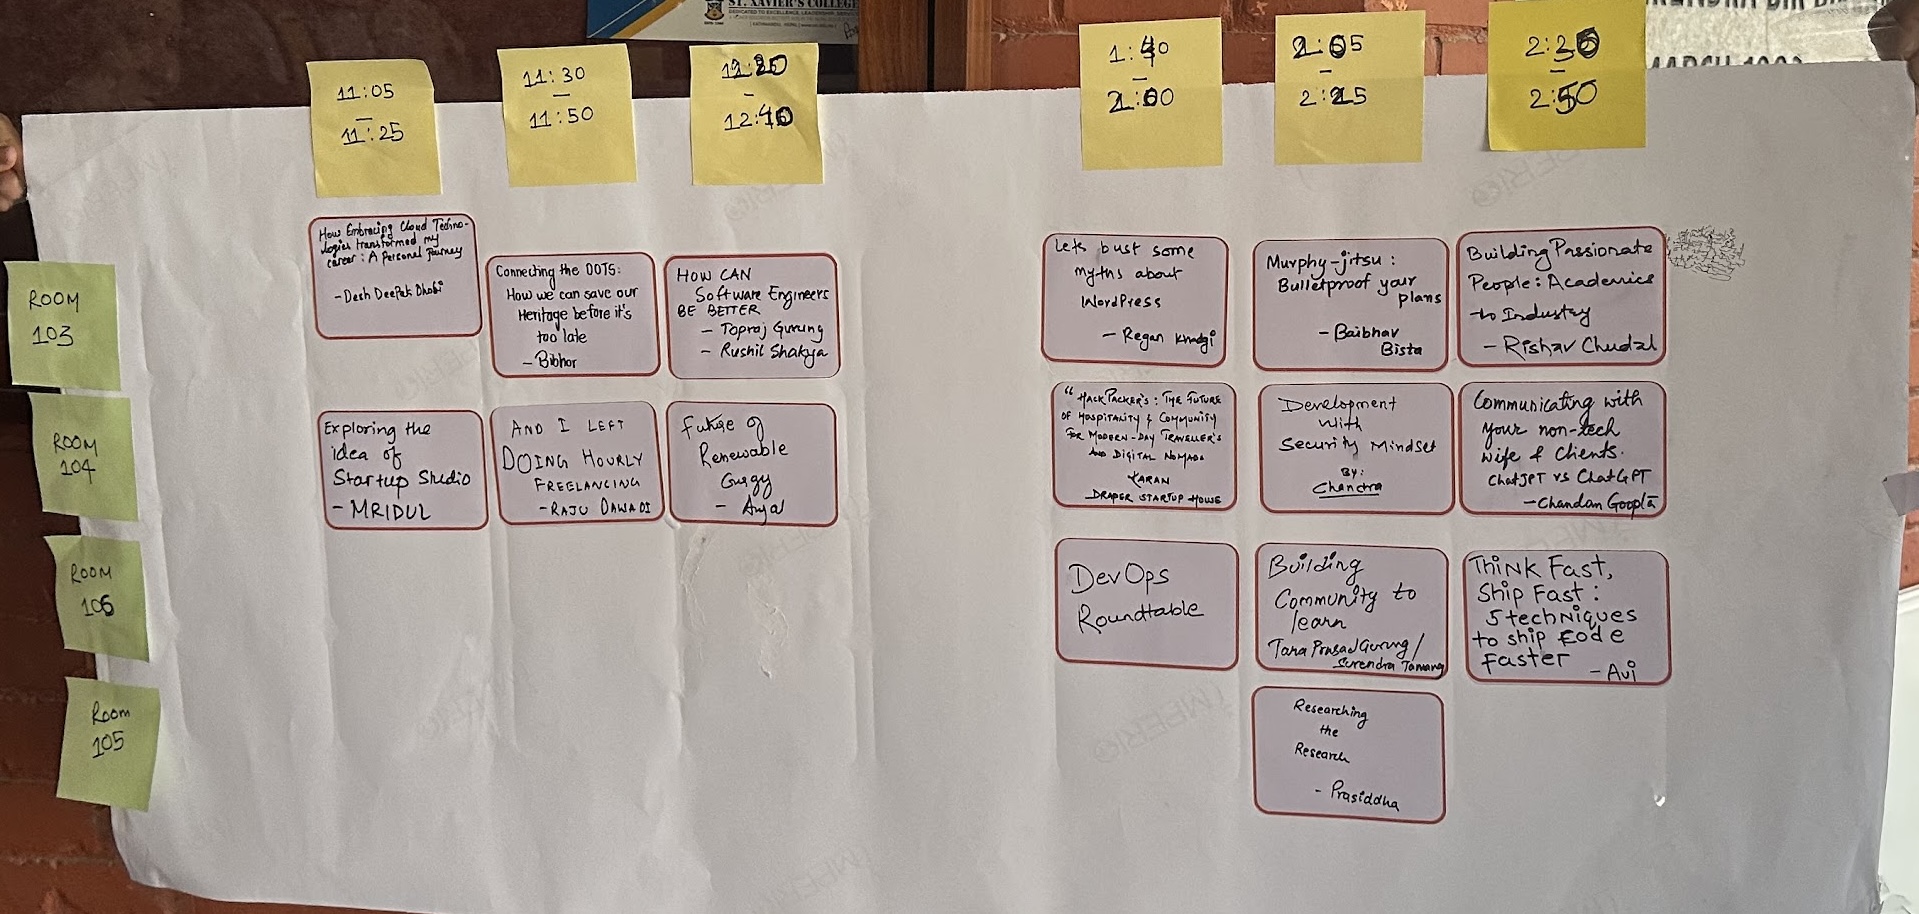 ST. XAVIER'S COLLEGE
11:05
—
11:25
11:30
—
11:50
12:20
-
12:40
1:40
—
2:00
2:05
-
2:25
2:30
—
2:50
ROOM
103
How Embracing Cloud Techno-
logies transformed my
career: A Personal Journey
- Desh Deepak Dhobi
Connecting the DOTS:
How we can save our
Heritage before it's
too late
- Bibhor
HOW CAN
Software Engineers
BE BETTER
- Topraj Gurung
- Rushil Shakya
Lets bust some
myths about
WordPress
- Regan Khadgi
Murphy-jitsu:
Bulletproof your
plans
- Baibhav
Bista
Building Passionate
People: Academics
to Industry
- Rishav Chudal
ROOM
104
Exploring the
idea of
Startup Studio
- MRIDUL
AND I LEFT
DOING HOURLY
FREELANCING
- RAJU DAWADI
Future of
Renewable
- 
"HACKPACKER'S: THE FUTURE
OF HOSPITALITY & COMMUNITY
FOR MODERN-DAY TRAVELLER'S
AND DIGITAL NOMADS
KARAN
DRAPER STARTUP HOUSE
Development
With
Security Mindset
BY:
Chandra
Communicating with
your non-tech
wife & clients.
ChatJPT vs ChatGPT
- Chandan Goopta
ROOM
106
DevOps
Roundtable
Building
Community to
learn
Tara Prasad Gurung/
Surendra Tamang
Think Fast,
Ship Fast:
5 techniques
to ship code
faster
- Avi
Room
105
Researching
the
Research
- Prasiddha